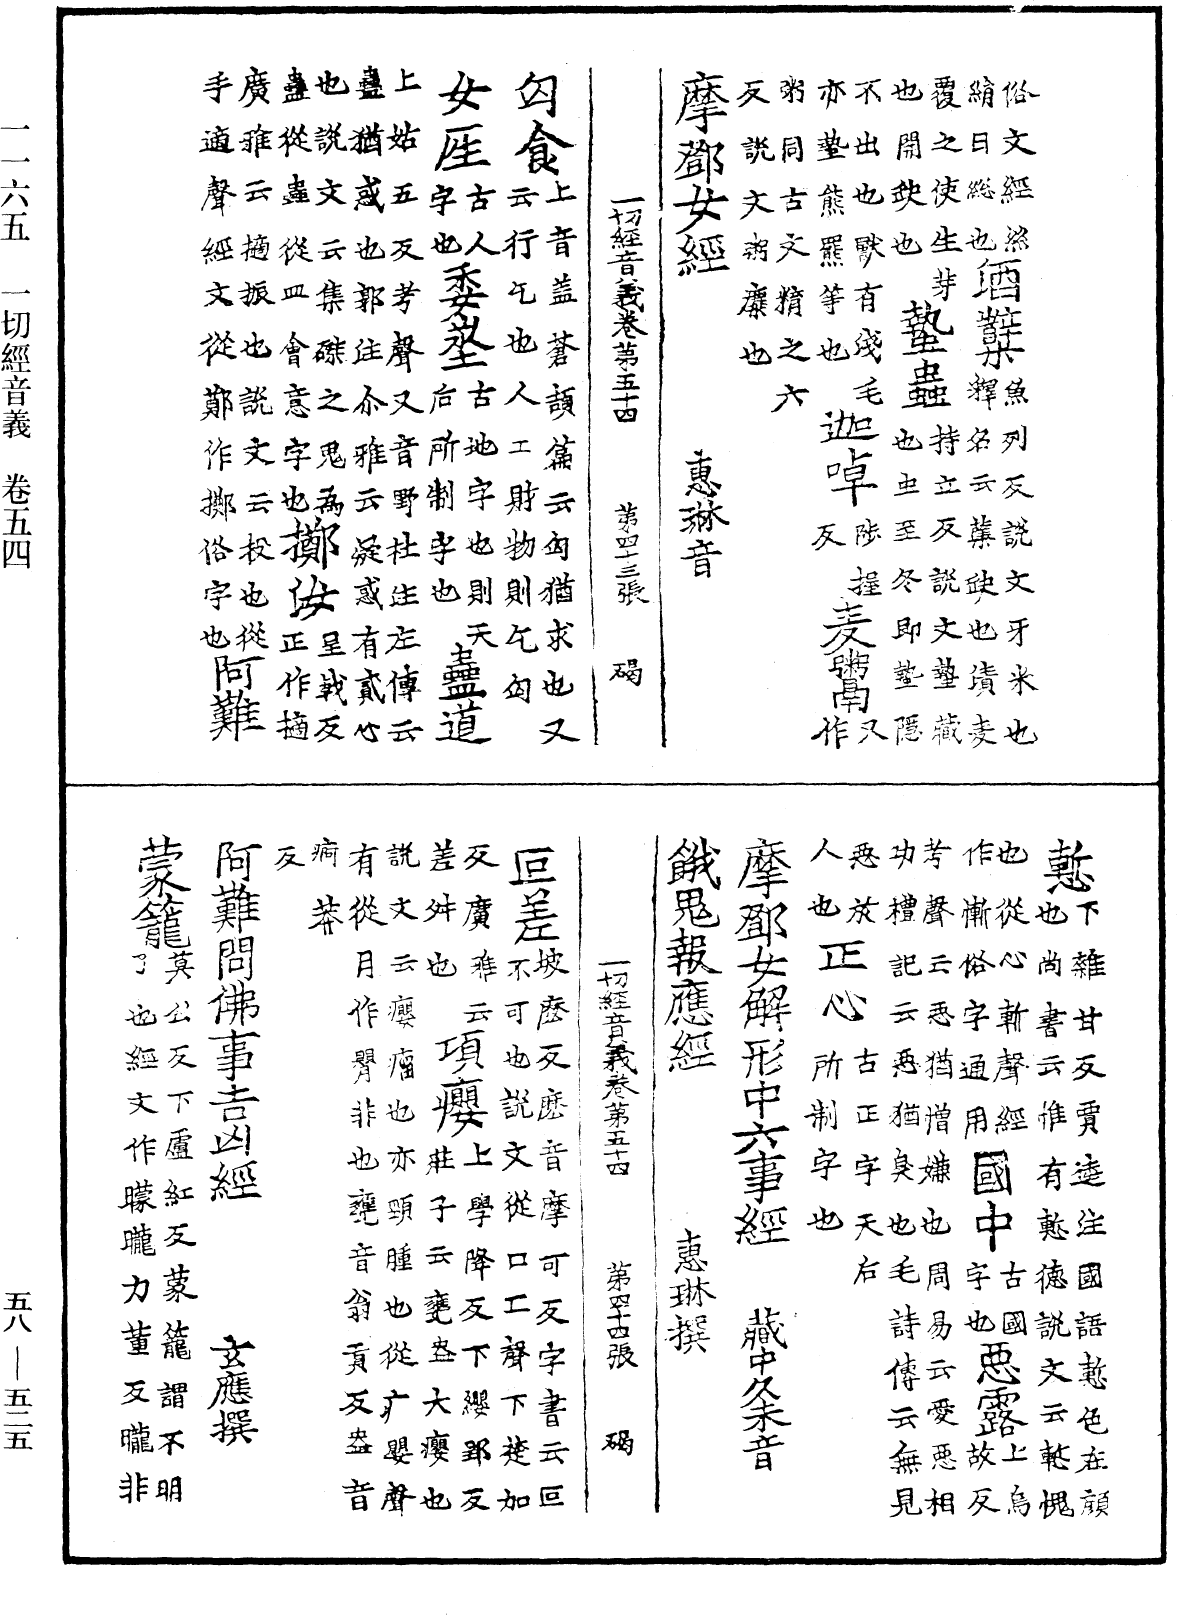 一一六五　一切經音義　卷五四
俗文經絲
絹曰総也
酒糵
魚列反說文牙米也
釋名云糵缺也漬麦
覆之使生芽
也開缺也
蟄蟲
持立反說文蟄藏
也虫至冬即蟄隱
不出也獸有淺毛
亦蟄熊羆等也
迦啅
陟捉
反
麦鬻
又
作
粥同古文䊠之六
反說文粥糜也
摩鄧女經　惠琳音
一切經音義卷第五十四　第四十三張　碣
匃食
上音盖蒼頡篇云匃猶求也又
云行乞也人工財物則乞匃
女𤯔
古人
字也
委埊
古地字也則天
后所制字也
蠱道
上姑五反考聲又音野杜注左傳云
蠱猶惑也郭注尒雅云蠱惑有貳心
也說文云集磔之鬼為
蠱從蟲從皿會意字也
擲女
呈戟反
正作擿
廣雅云擿振也說文云投也從
手適聲經文從鄭作擲俗字也
阿難
慙
下雜甘反賈逵注國語慙色在顏
也尚書云惟有慙德說文云慙愧
也從心斬聲經
作慚俗字通用
國中
古國
字也
惡露
上烏
故反
考聲云惡猶憎嫌也周易云愛惡相
功禮記云惡猶臭也毛詩傳云無見
惡故
人也
正心
古正字天后
所制字也
摩鄧女解形中六事經　藏中久未音
餓鬼報應經　惠琳撰
一切經音義卷第五十四　第四十四張　碣
叵差
坡麽反麽音摩可反字書云叵
不可也說文從口工聲下楚加
反廣雅云
差舛也
項癭
上學降反下纓郢反
莊子云甕盎大癭也
說文云癭瘤也亦頸腫也從疒嬰聲
有從月作䐑非也甕音翁貢反盎音
痾莽
反
阿難問佛事吉凶經　玄應撰
蒙籠
莫公反下盧紅反蒙籠謂不明
了也經文作矇矓力董反矓非
五八—五二五